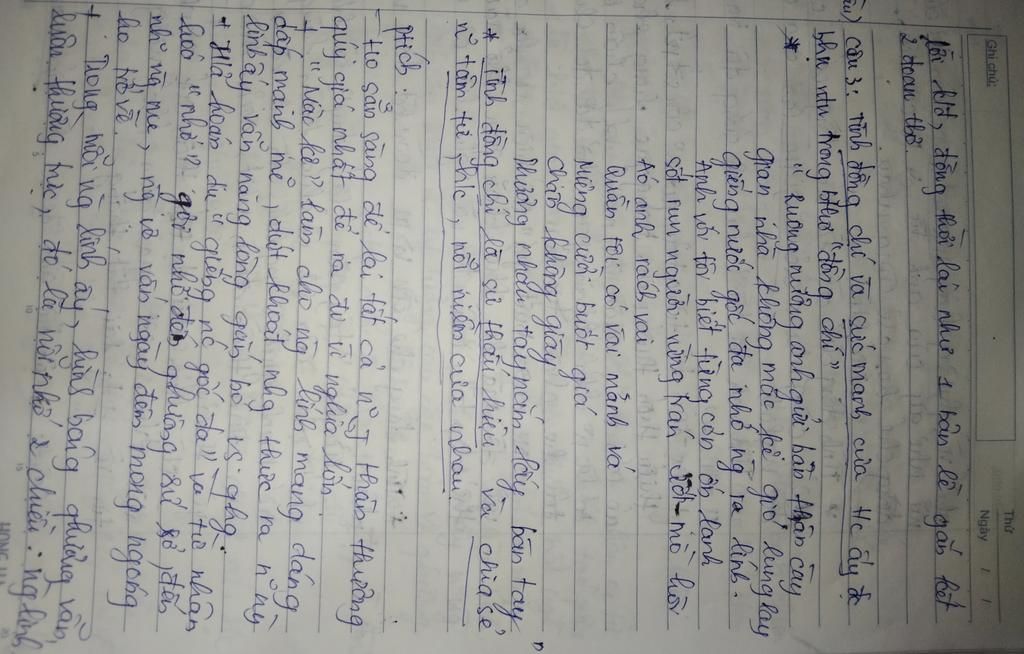 Ghi chú:
Thứ
Ngày / /
lời kết, đồng thời lại như 1 bản lề gắn kết
2 đoạn thơ.
Câu 3: tình đồng chí và sức mạnh của t/c ấy đc
trong thơ "đồng chí"
* "Ruộng nương anh gửi bạn thân cày
gian nhà không mặc kệ gió lung lay
giếng nước gốc đa nhớ ng ra lính.
Anh với tôi biết từng cơn ớn lạnh
sốt run người vừng trán ướt mồ hôi
Áo anh rách vai
Quần tôi có vài mảnh vá
Miệng cười buốt giá
chân không giày
Thương nhau tay nắm lấy bàn tay"
* Tình đồng chí là sự thấu hiểu và chia sẻ
n~ tâm tư, nỗi niềm của nhau.
- Họ sẵn sàng để lại tất cả n~ j thân thương
quý giá nhất để ra đi vì nghĩa lớn.
+ "Mặc kệ" làm cho ng lính mang dáng
dấp mạnh mẽ, dứt khoát nhg thưa ra n~ ng
lính ấy vẫn nặng lòng gắn bó vs qhg.
+ H/a hoán dụ "giếng nc gốc đa" và từ nhân
hoá "nhớ" gợi nhớ đến phương xứ sở, đến
những mẹ, ng vợ vẫn ngày đêm mong ngóng
họ trở về.
+ Trong mỗi ng lính ấy, h/ả quê hương vẫn
luôn thường trực, đó là nỗi nhớ 2 chiều. ng lính